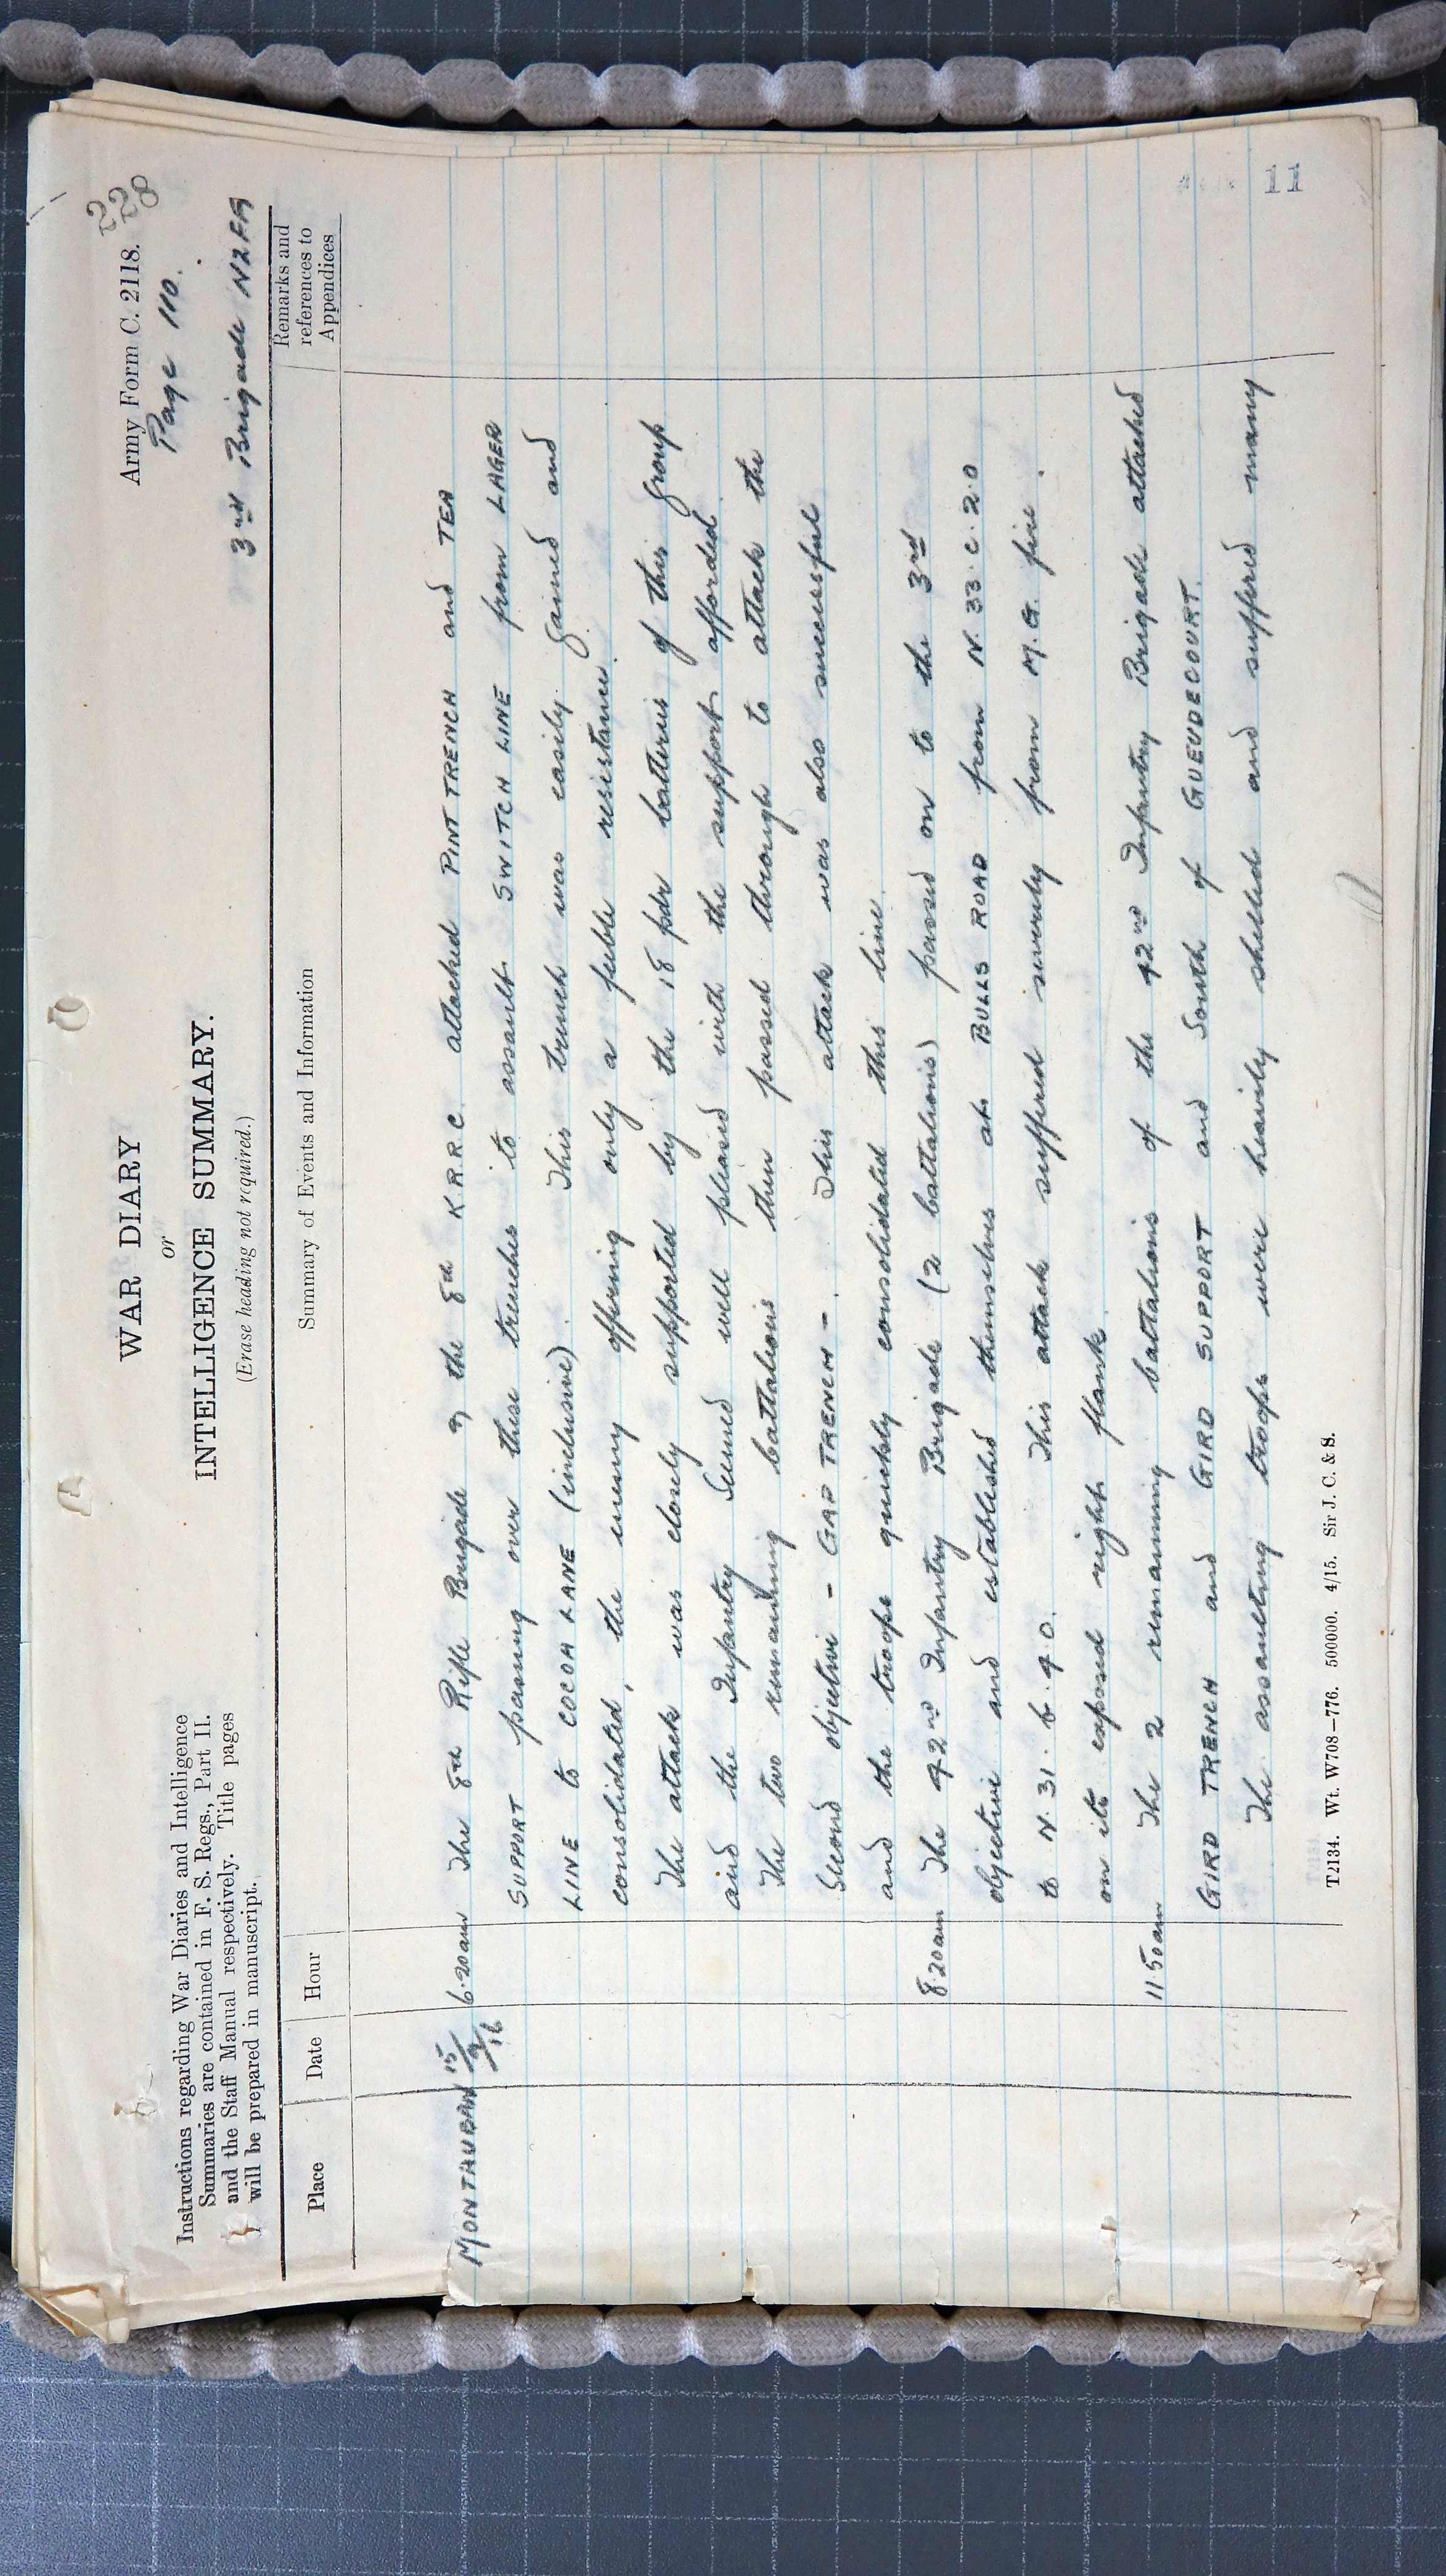 228
Army Form C. 2118.
Page 110.
3rd Brigade NZFA
WAR DIARY
or
INTELLIGENCE SUMMARY.
(Erase heading not required.)
Instructions regarding War Diaries and Intelligence
Summaries are contained in F. S. Regs., Part II.
and the Staff Manual respectively. Title pages
will be prepared in manuscript.
Place Date Hour Summary of Events and Information Remarks and references to Appendices
MONTAUBAN 15/9/16 6.20am The 8th Rifle Brigade & the 8th K.R.R.C. attacked PINT TRENCH and TEA
SUPPORT passing over these trenches to assault SWITCH LINE from LAGER
LINE to COCOA LANE (inclusive). This trench was easily gained and
consolidated, the enemy offering only a feeble resistance.
The attack was closely supported by the 18 pdr batteries of this group
and the Infantry seemed well pleased with the support afforded.
The two remaining battalions then passed through to attack the
Second objective - GAP TRENCH -. This attack was also successful
and the troops quickly consolidated this line.
8.20am The 42nd Infantry Brigade (2 battalions) passed on to the 3rd
objective and established themselves at BULLS ROAD from N.33.c.2.0
to N.31.b.4.0. This attack suffered severely from M.G. fire.
on its exposed right flank.
11.50am The 2 remaining battalions of the 42nd Infantry Brigade attacked
GIRD TRENCH and GIRD SUPPORT and South of GUEUDECOURT.
The assaulting troops were heavily shelled and suffered many
T2134. Wt. W708-776. 500000. 4/15. Sir J. C. & S.
11